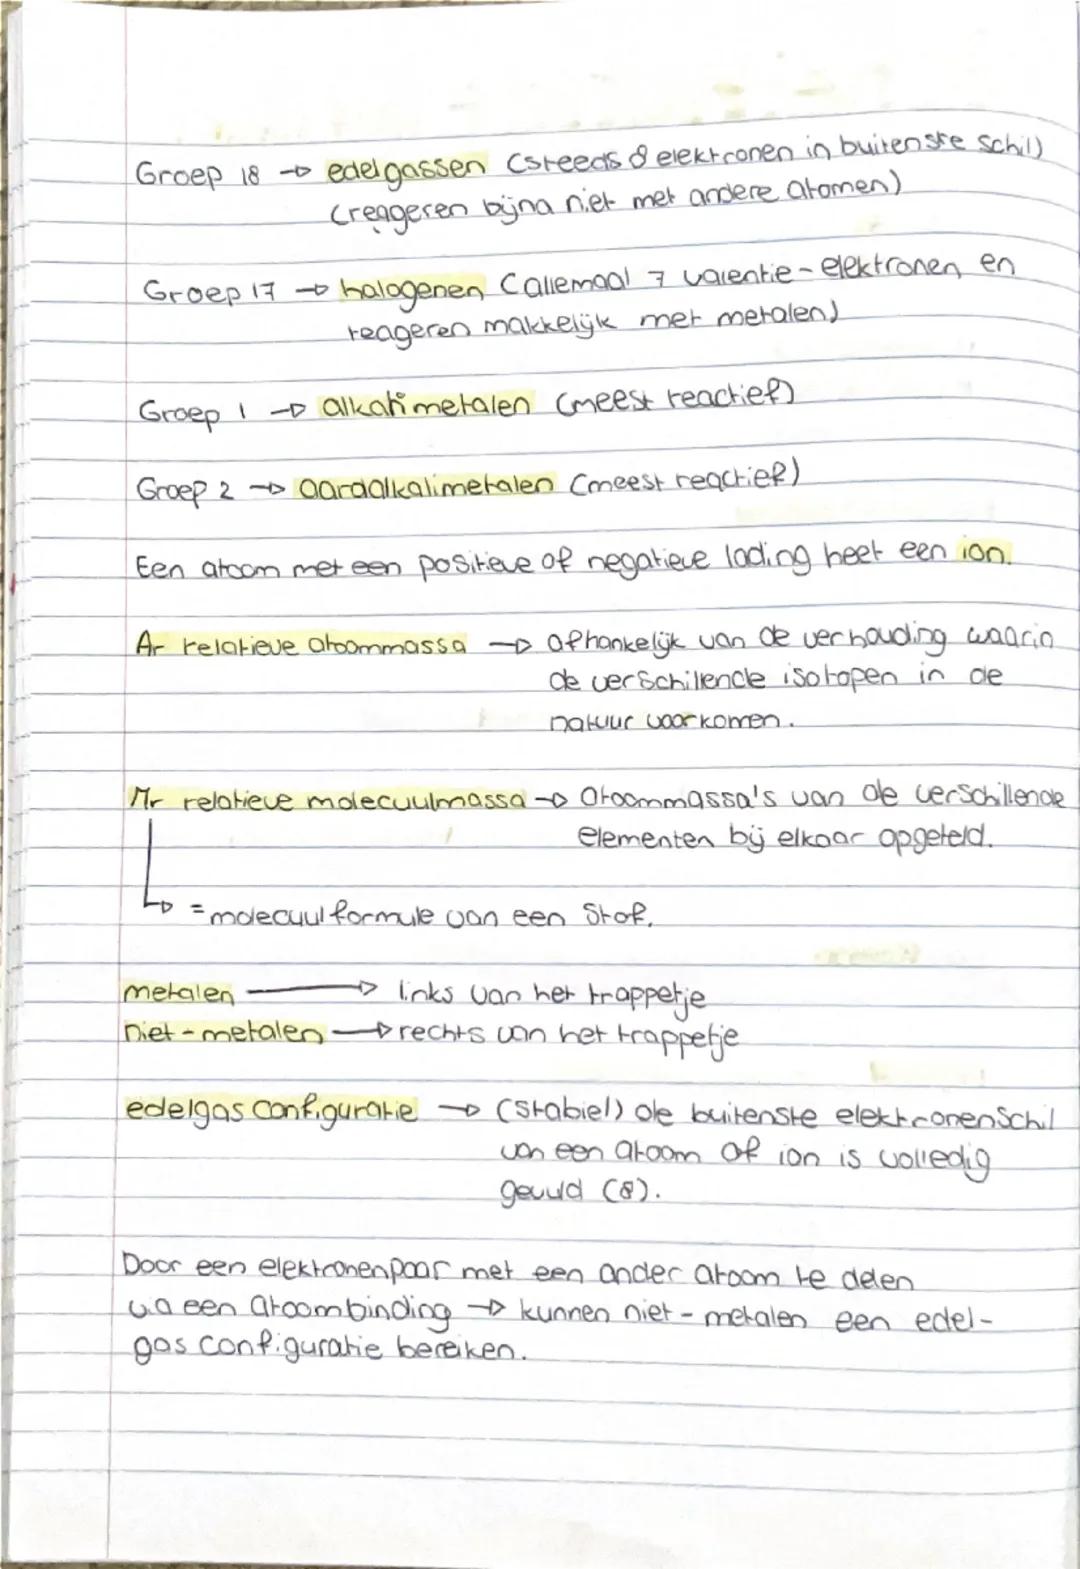 Groep 18 → edelgassen (steeds 8 elektronen in buitenste schil)
(reageren bijna niet met andere atomen)
Groep 17 → halogenen (allemaal 7 valentie-elektronen en
reageren makkelijk met metalen)
Groep 1 → alkalimetalen (meest reactief)
Groep 2 → aardalkalimetalen (meest reactief)
Een atoom met een positieve of negatieve lading heet een ion.
Ar relatieve atoommassa → afhankelijk van de verhouding waarin
de verschillende isotopen in de
natuur voorkomen.
Mr relatieve molecuulmassa → atoommassa's van de verschillende
elementen bij elkaar opgeteld.
↳ = molecuulformule van een stof.
metalen → links van het trappetje
niet-metalen → rechts van het trappetje
edelgasconfiguratie → (stabiel) de buitenste elektronenschil
van een atoom of ion is volledig
gevuld (8).
Door een elektronenpaar met een ander atoom te delen
via een atoombinding → kunnen niet-metalen een edel-
gasconfiguratie bereiken.